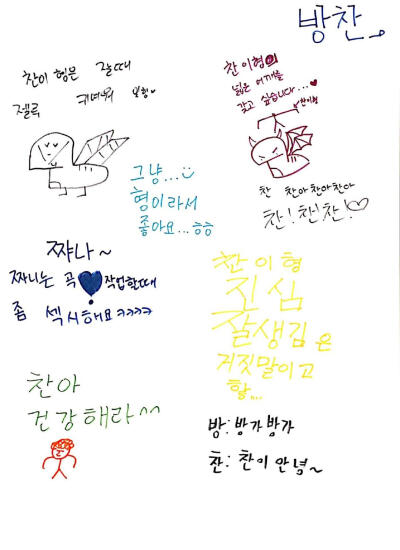 방찬
찬이 형은 잘때
젤루 귀여워 보형
찬이형의
넓은 어깨를
갖고 싶습니다...
찬이형
그냥...
형이라서
좋아요...ㅎㅎ
찬 찬아찬아찬아
찬!찬!찬!
쨔나~
짜니는 곡 작업할때
좀 섹시해요ㅋㅋㅋㅋ
찬이형
진심
잘생김은
거짓말이고
할...
찬아
건강해라^^
방:방가방가
찬:찬이안녕~